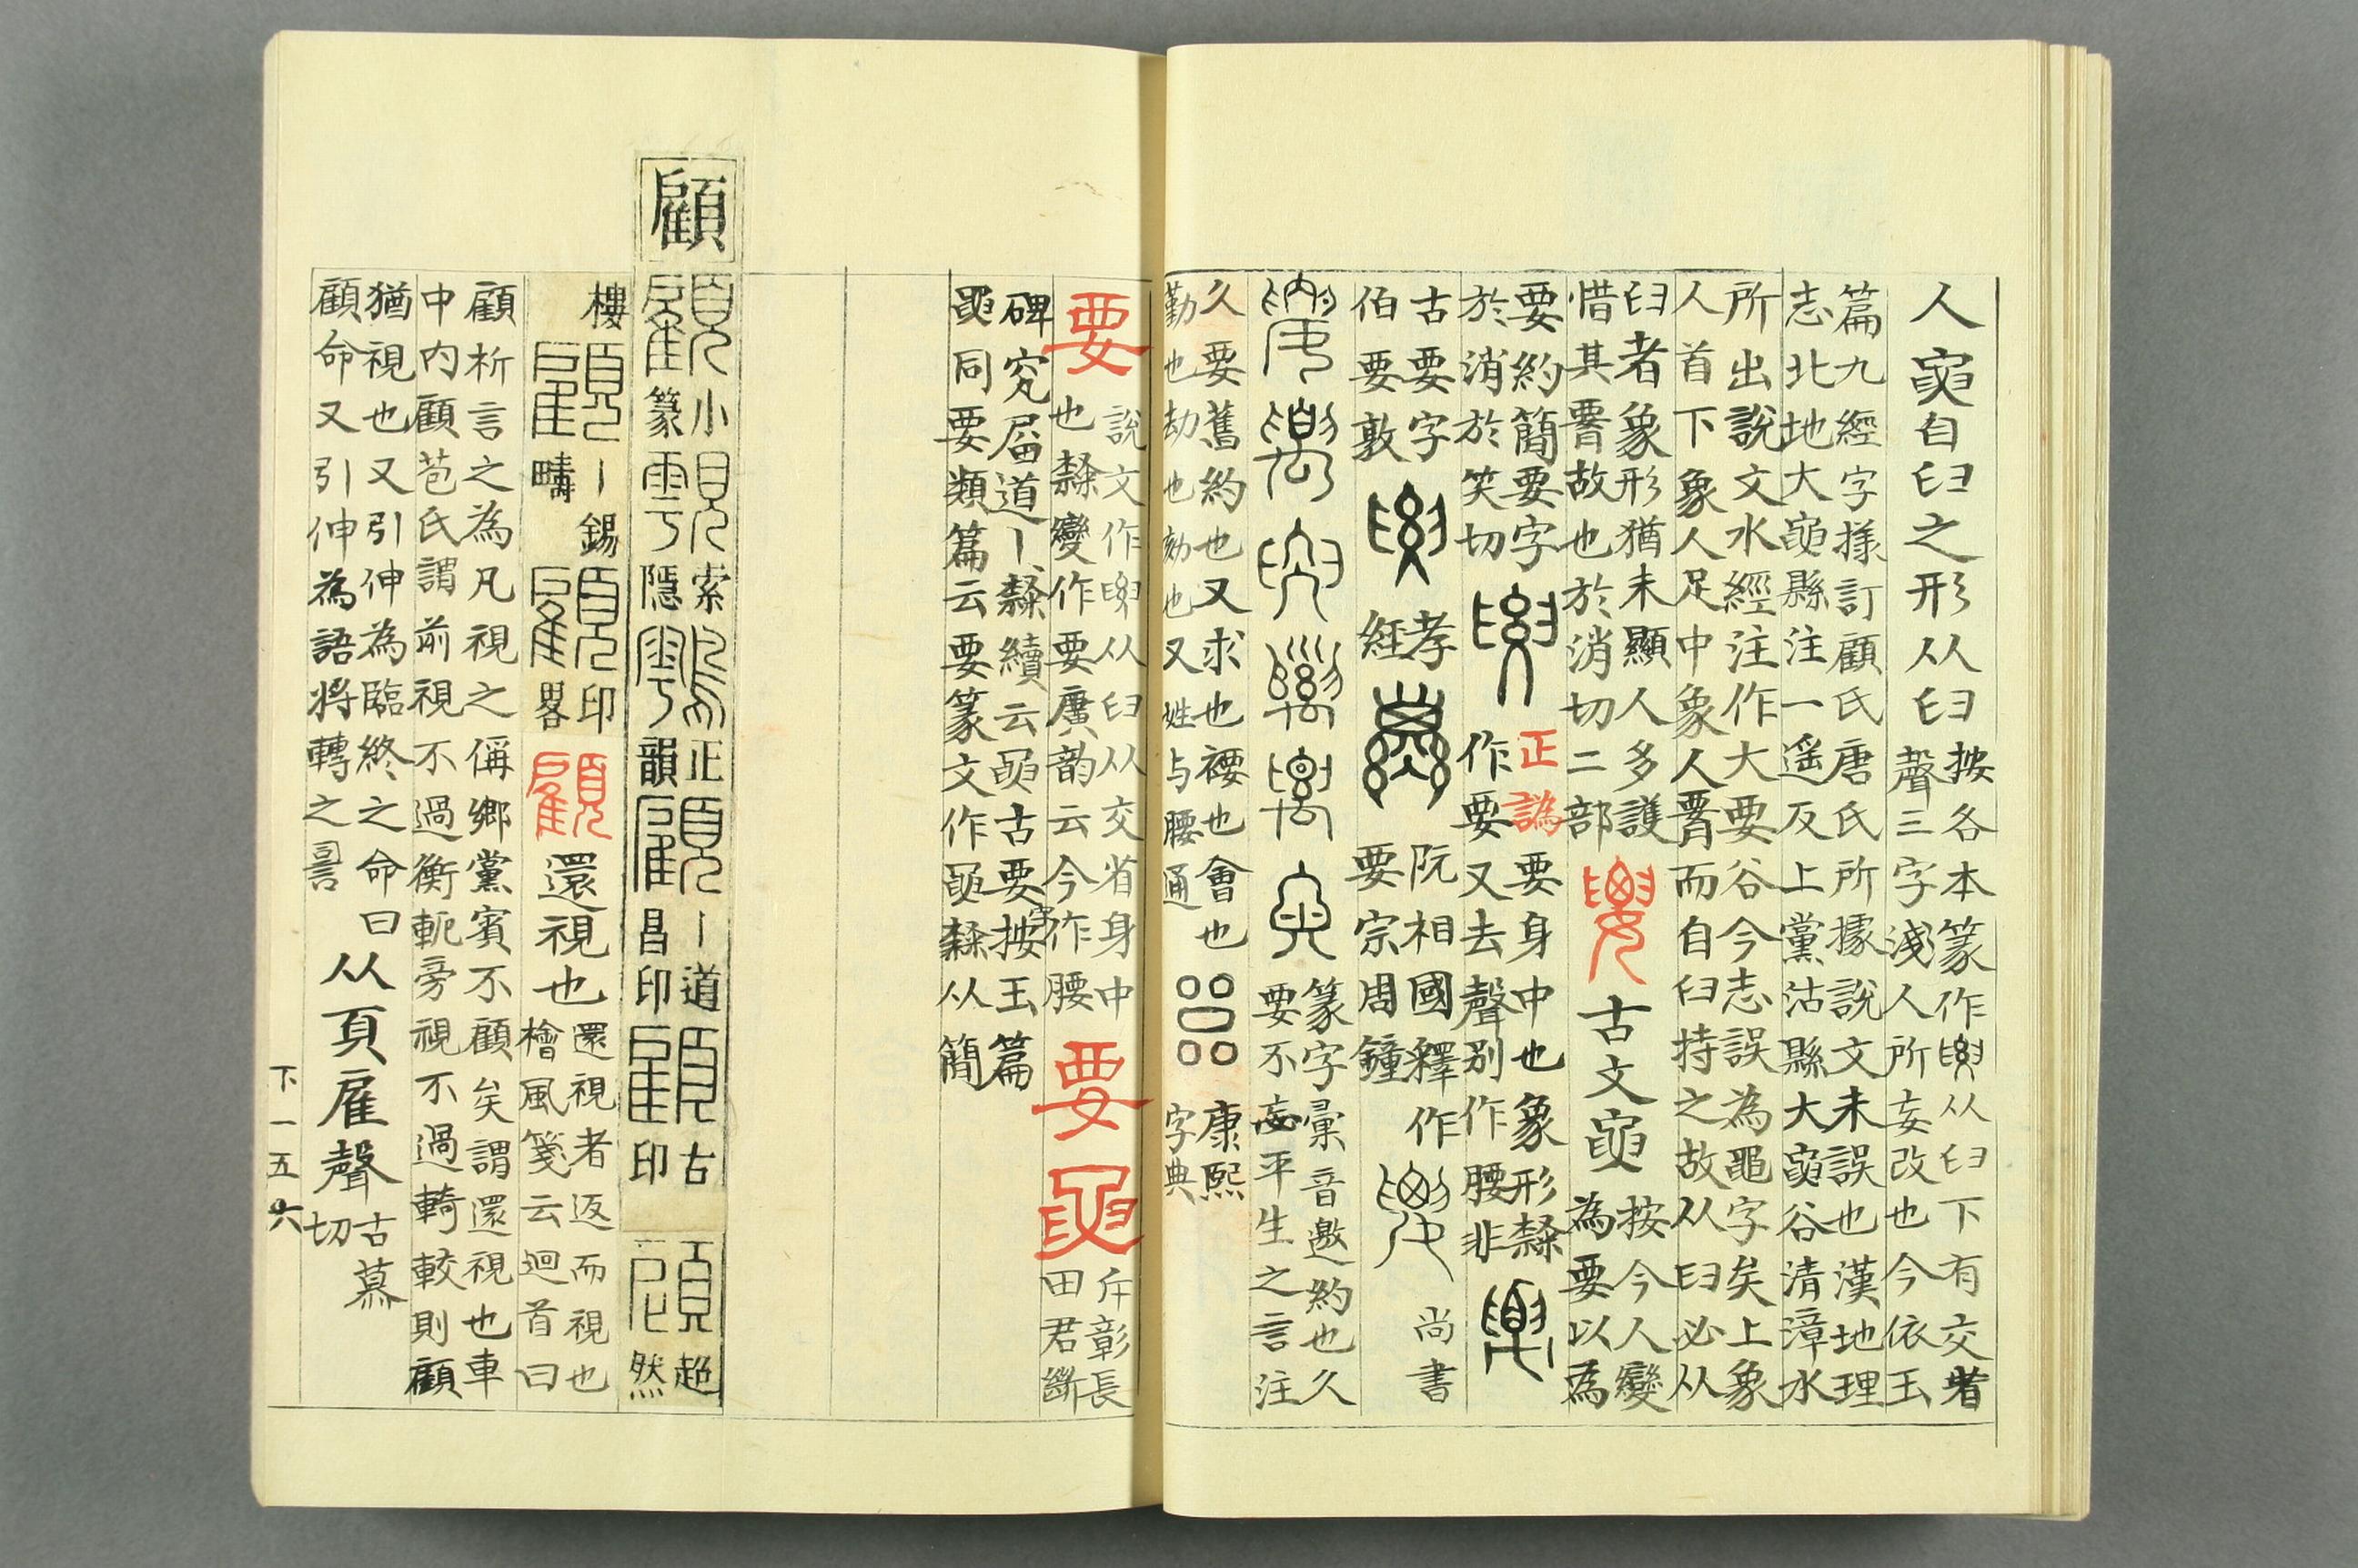 人𦥼自臼之形从臼
按各本篆作𦥼从臼下有交省
聲三字淺人所妄改也今依玉
篇九經字樣訂顧氏唐氏所據說文未誤也漢地理
志北地大𦥼縣注一遥反上黨沾縣大𦥼谷清漳水
所出說文水經注作大要谷今志誤為黽字矣上象
人首下象人足中象人𦝫而自臼持之故从臼必从
臼者象形猶未顯人多護
惜其𦝫故也於消切二部
古文𦥼
按今人變
為要以為
要約簡要字
於消於笑切
正譌
要身中也象形隸
作要又去聲別作腰非
古要字
伯要敦
孝
經
阮相國釋作
要宗周鐘
尚書
篆字彙音邀約也久
要不忘平生之言注
久要舊約也又求也褄也會也
勤也劫也劾也又姓与腰通
康熙
字典
要
說文作𦥼从臼从交省身中
也隸變作要廣韵云今作腰
要
𦥼
斥彰長
田君斷
碑究屈道丨隸續云𦥼古要字按玉篇
𦥼同要類篇云要篆文作𦥼隸从簡
顧
顧
小
篆
索
隱
正
韻
顧
丨道
昌印
顧
古
印
超
然
樓
顧
丨錫
疇
顧
印
畧
顧
還視也
還視者返而視也
檜風箋云迴首曰
顧析言之為凡視之偁鄉黨賓不顧矣謂還視也車
中內顧苞氏謂前視不過衡軛旁視不過輢較則顧
猶視也又引伸為臨終之命曰
顧命又引伸為語將轉之䛐
从頁雇聲
古慕
切
下一五六